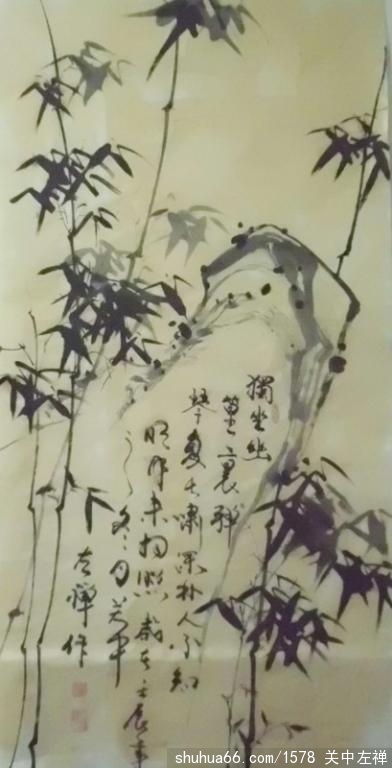 獨坐幽
篁裏彈
琴复长嘯深林人不知
明月来相照歲在壬辰年
之冬月关中
左禅作
shuhua66.com/1578 关中左禅